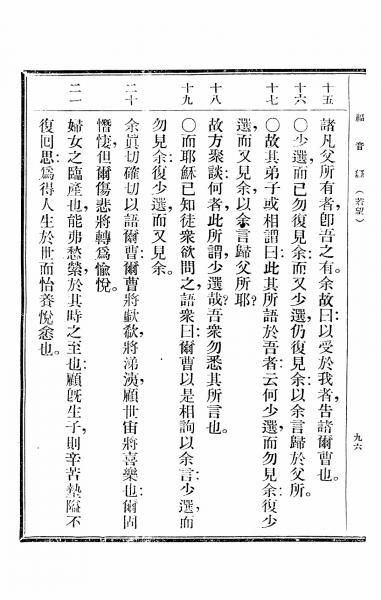 福音經 （若望） 九六
十五 諸凡父所有者，卽吾之有。余故曰：以受於我者，告諸爾曹也。
十六 〇少選而已勿復見余，而又少選仍復見余，以余言歸於父所。
十七 〇故其弟子或相謂曰：此其所語於吾者，云何少選而勿見余，復少
選而又見余，以余言歸父所耶？
十八 故方聚談何者，此所謂少選哉？吾衆勿悉其所言也。
十九 〇而耶穌已知徒衆欲問之，語衆曰：爾曹以是相詢，以余言少選而
勿見余，復少選而又見余。
二十 余眞切確切以語爾曹，爾曹將欷歔，將涕洟，顧世宙將喜樂也：爾固
憯悽，但爾傷悲將轉爲愉悅。
二一 婦女之臨產也，能弗愁縈，於其時之至也：顧旣生子，則辛苦墊隘不
復回思，爲得人生於世而怡養悅悆也。